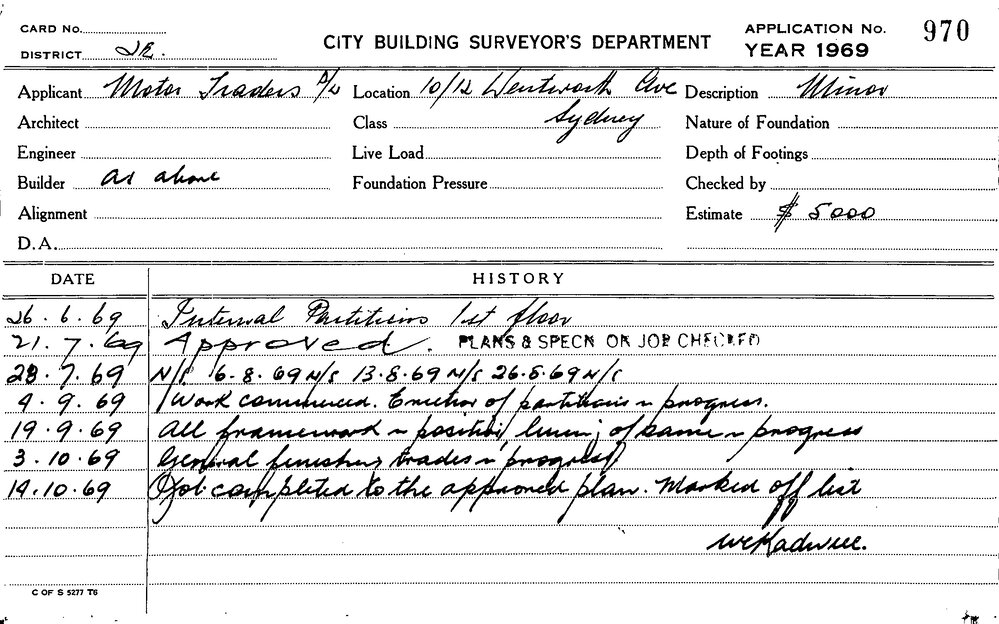 CARD No.
DISTRICT
CITY BUILDING SURVEYOR'S DEPARTMENT
APPLICATION No. 970
YEAR 1969
Applicant Motor Traders P/L Location 10/12 Wentworth Ave Description Minor
Architect Class Sydney Nature of Foundation
Engineer Live Load Depth of Footings
Builder as above Foundation Pressure Checked by
Alignment Estimate $ 5000
D.A.
DATE HISTORY
26.6.69 Internal Partitions 1st floor
21.7.69 Approved. PLANS & SPECN ON JOB CHECKED
28.7.69 N/S. 6.8.69 N/S 13.8.69 N/S 26.8.69 N/S
4.9.69 Work commenced. Erection of partitions in progress.
19.9.69 All framework in position, lining of same in progress
3.10.69 General finishing trades in progress
14.10.69 Job completed to the approved plan. Marked off list
C OF S 5277 T6